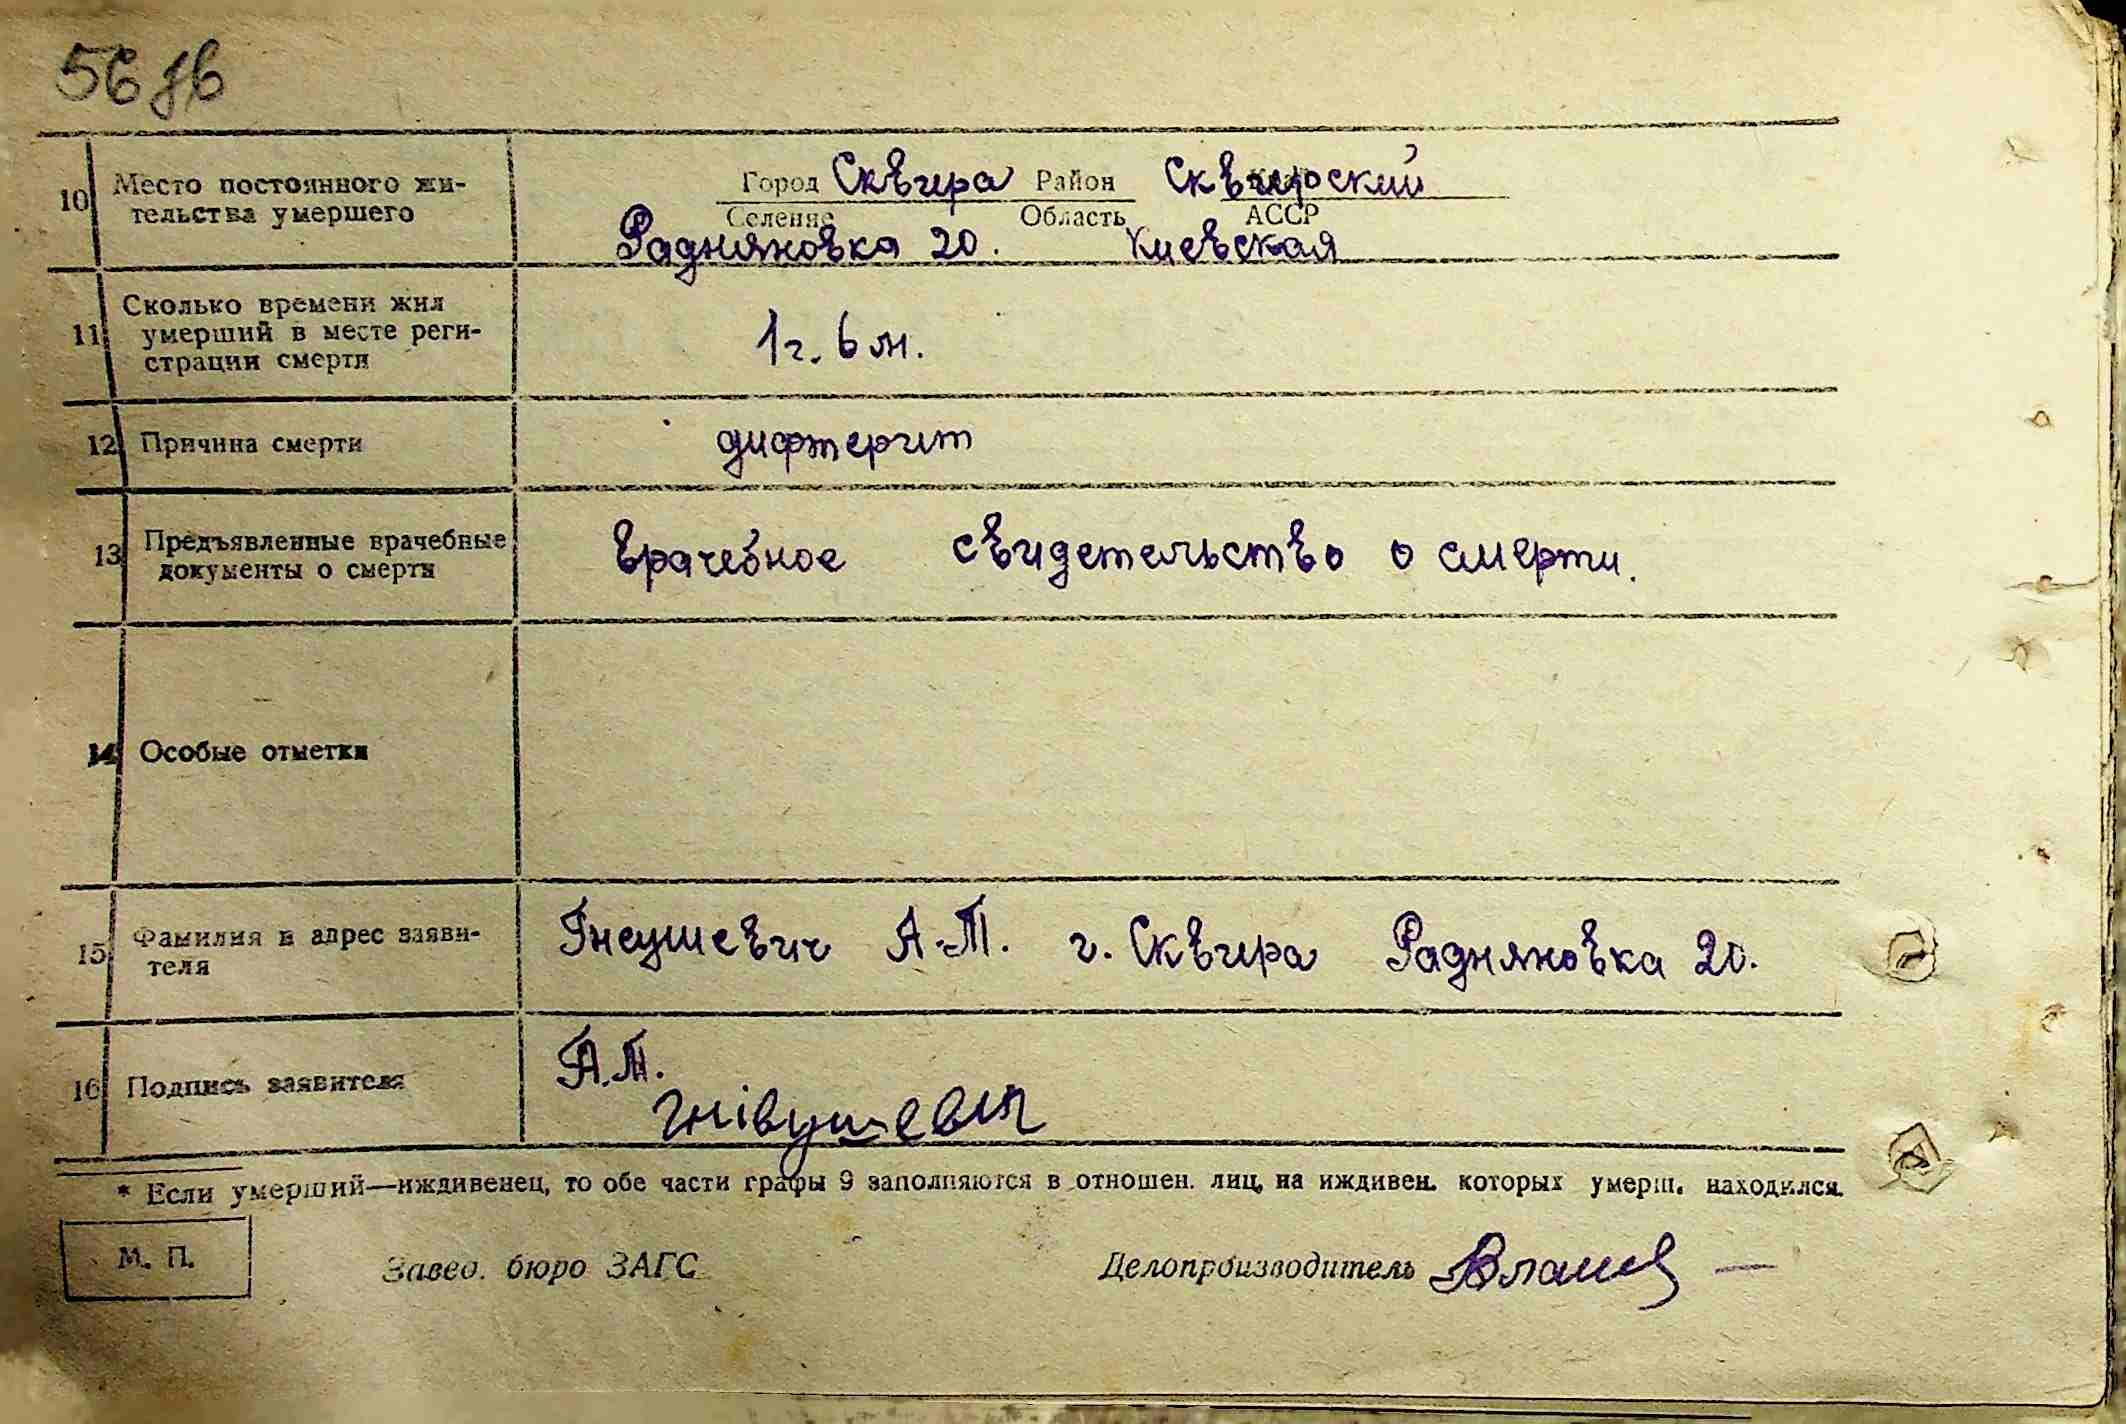 56 зв
10 Место постоянного жи-
тельства умершего
Город Сквира Район Сквирский
Селение Область АССР
Радняновка 20. Киевская
11 Сколько времени жил
умерший в месте реги-
страции смерти
1 г. 6 м.
12 Причина смерти
дифтерит
13 Предъявленные врачебные
документы о смерти
врачебное свидетельство о смерти.
14 Особые отметки
15 Фамилия и адрес заяви-
теля
Гнеушевич А.Т. г. Сквира Радняновка 20.
16 Подпись заявителя
А.Т.
Гнівушевич
* Если умерший—иждивенец, то обе части графы 9 заполняются в отношен. лиц, на иждивен. которых умерш. находился.
М. П.
Завед. бюро ЗАГС
Делопроизводитель